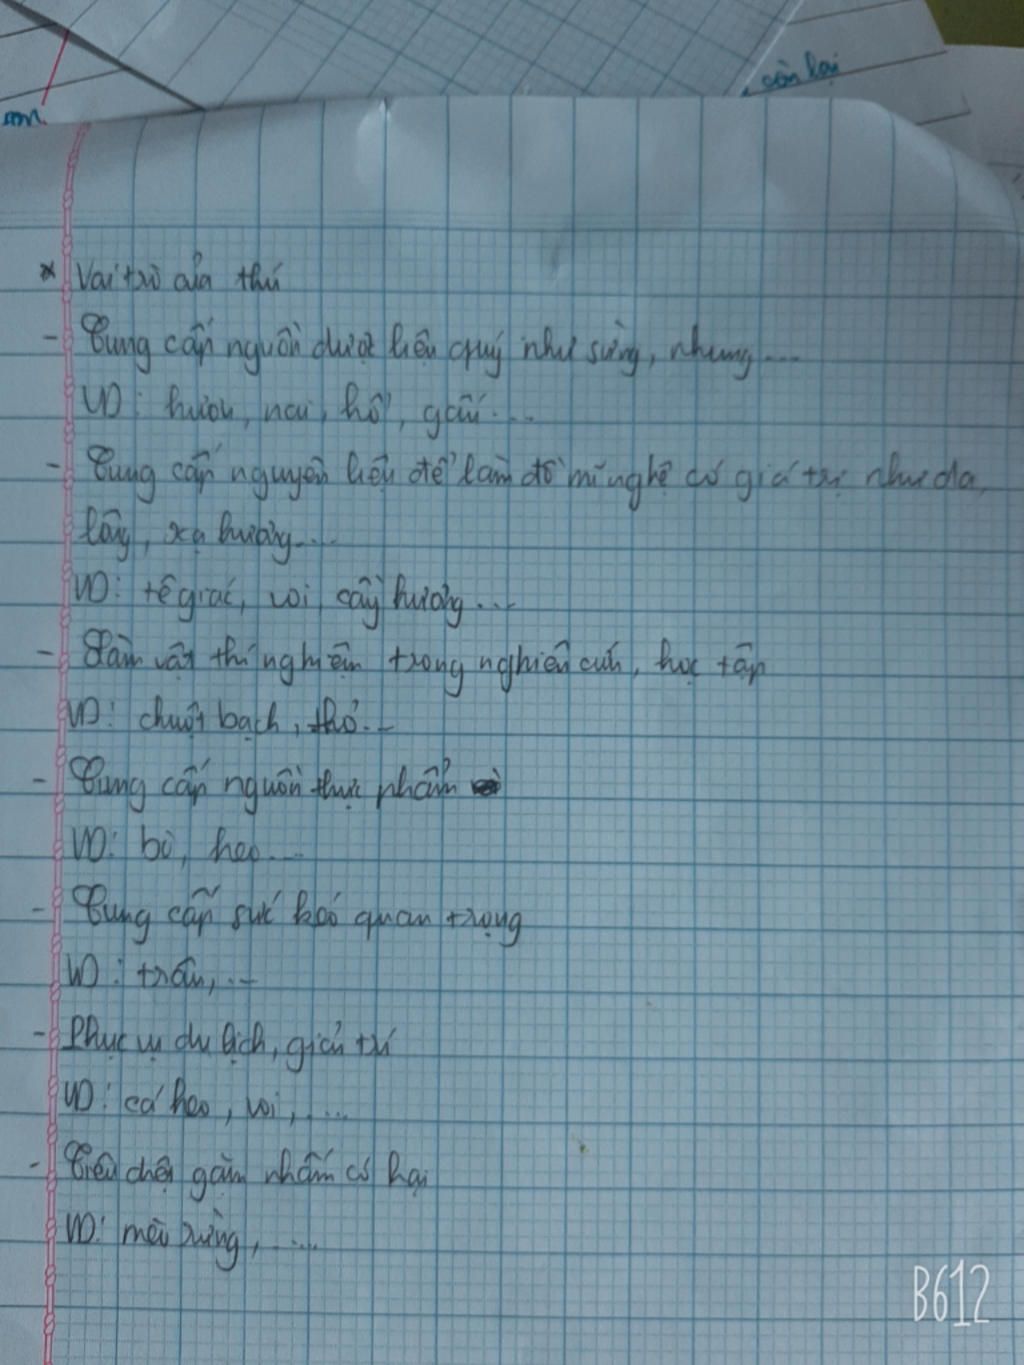 còn lại
* Vai trò của thú
- Cung cấp nguồn dược liệu quý như sừng, nhung...
VD: hươu, nai, hổ, gấu...
- Cung cấp nguyên liệu để làm đồ mĩ nghệ có giá trị như da,
lông, xạ hương...
VD: tê giác, voi, cầy hương...
- Làm vật thí nghiệm trong nghiên cứu, học tập
VD: chuột bạch, thỏ...
- Cung cấp nguồn thực phẩm
VD: bò, heo...
- Cung cấp sức kéo quan trọng
VD: trâu,...
- Phục vụ du lịch, giải trí
VD: cá heo, voi,....
- Tiêu diệt gặm nhấm có hại
VD: mèo rừng,.....
B612